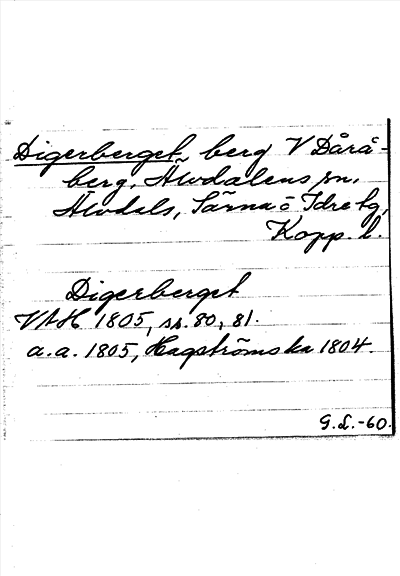 Digerberget, berg V Dårå-
berg, Älvdalens sn,
Älvdals, Särna o Idre tg,
Kopp. l.
Digerberget
VAH 1805, ss. 80, 81.
a.a. 1805, Hagströms ka 1804.
G.L.-60.